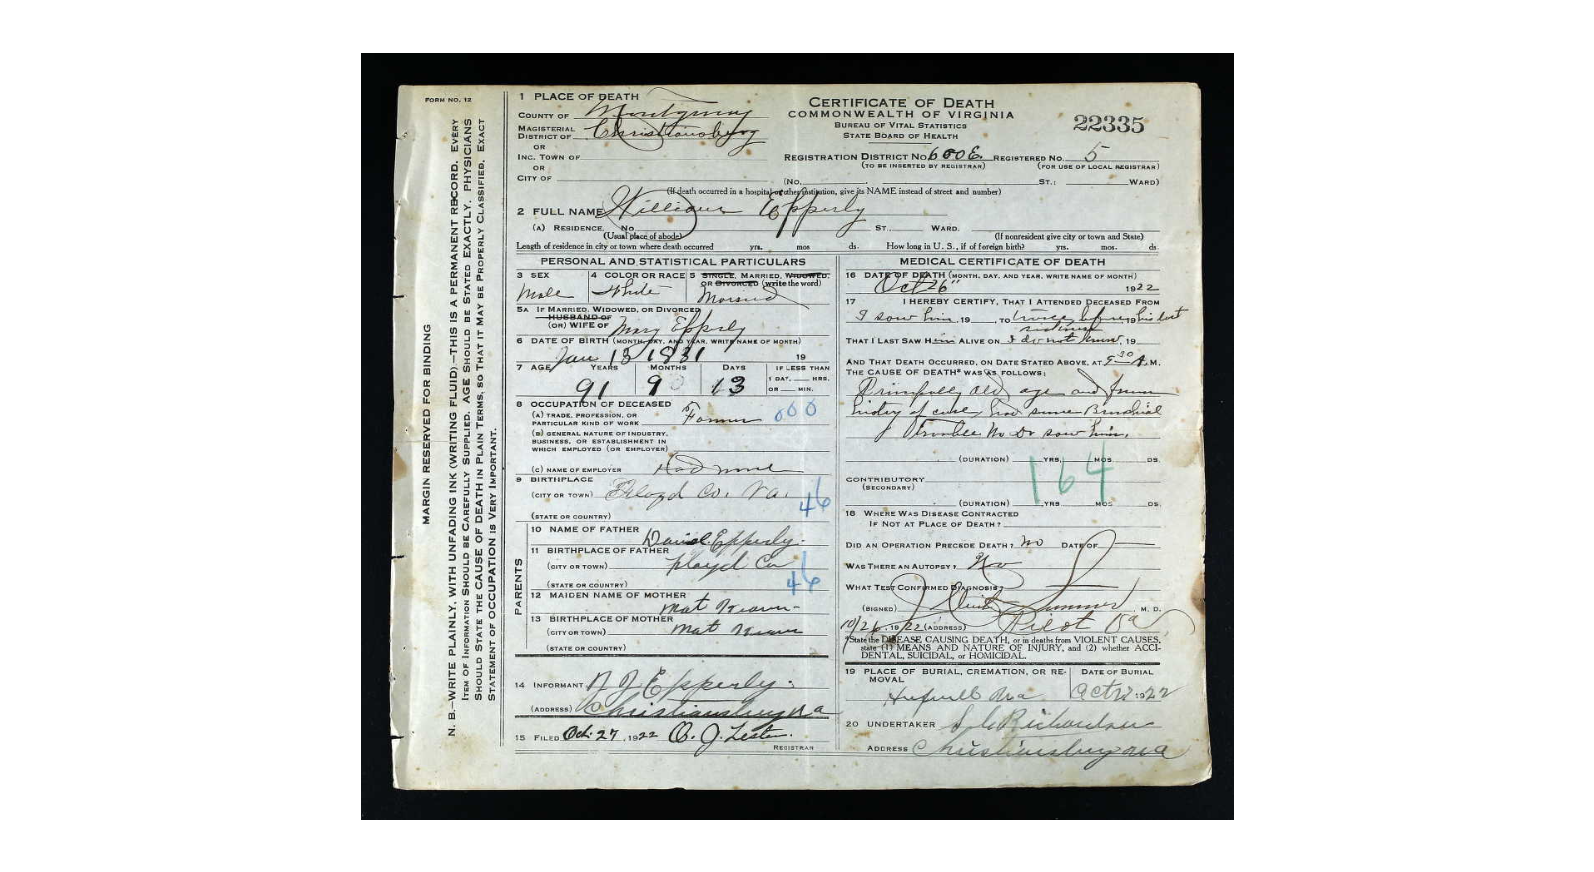 FORM NO. 12
MARGIN RESERVED FOR BINDING
N. B.—WRITE PLAINLY, WITH UNFADING INK (WRITING FLUID).—THIS IS A PERMANENT RECORD. EVERY
ITEM OF INFORMATION SHOULD BE CAREFULLY SUPPLIED. AGE SHOULD BE STATED EXACTLY. PHYSICIANS
SHOULD STATE THE CAUSE OF DEATH IN PLAIN TERMS, SO THAT IT MAY BE PROPERLY CLASSIFIED. EXACT
STATEMENT OF OCCUPATION IS VERY IMPORTANT.
1 PLACE OF DEATH
COUNTY OF Montgomery
MAGISTERIAL
DISTRICT OF Christiansburg
OR
INC. TOWN OF
OR
CITY OF
CERTIFICATE OF DEATH
COMMONWEALTH OF VIRGINIA
BUREAU OF VITAL STATISTICS
STATE BOARD OF HEALTH
22335
REGISTRATION DISTRICT No. 600E REGISTERED NO. 5
(TO BE INSERTED BY REGISTRAR) (FOR USE OF LOCAL REGISTRAR)
(No. ST.: WARD)
(If death occurred in a hospital or other institution, give its NAME instead of street and number)
2 FULL NAME William Epperly
(A) RESIDENCE. No. ST.. WARD.
(Usual place of abode) (If nonresident give city or town and State)
Length of residence in city or town where death occurred yrs. mos ds. How long in U. S., if of foreign birth? yrs. mos. ds.
PERSONAL AND STATISTICAL PARTICULARS
3 SEX 4 COLOR OR RACE 5 SINGLE, MARRIED, WIDOWED,
OR DIVORCED (write the word)
Male White Married
5A IF MARRIED, WIDOWED, OR DIVORCED
HUSBAND OF
(OR) WIFE OF Mary Epperly
6 DATE OF BIRTH (MONTH, DAY, AND YEAR, WRITE NAME OF MONTH)
Jan 13 1831 19
7 AGE YEARS MONTHS DAYS IF LESS THAN
1 DAY, HRS.
OR MIN.
91 9 13
8 OCCUPATION OF DECEASED
(A) TRADE, PROFESSION, OR
PARTICULAR KIND OF WORK Farmer 000
(B) GENERAL NATURE OF INDUSTRY,
BUSINESS, OR ESTABLISHMENT IN
WHICH EMPLOYED (OR EMPLOYER)
(C) NAME OF EMPLOYER Had none
9 BIRTHPLACE
(CITY OR TOWN) Floyd Co. Va. 46
(STATE OR COUNTRY)
PARENTS
10 NAME OF FATHER Daniel Epperly
11 BIRTHPLACE OF FATHER
(CITY OR TOWN) Floyd Co 46
(STATE OR COUNTRY)
12 MAIDEN NAME OF MOTHER Not Known
13 BIRTHPLACE OF MOTHER
(CITY OR TOWN) Not Known
(STATE OR COUNTRY)
14 INFORMANT N J Epperly
(ADDRESS) Christiansburg Va
15 FILED Oct. 27, 1922 O. J. Lester.
REGISTRAR
MEDICAL CERTIFICATE OF DEATH
16 DATE OF DEATH (MONTH, DAY, AND YEAR, WRITE NAME OF MONTH)
Oct 26" 1922
17 I HEREBY CERTIFY, THAT I ATTENDED DECEASED FROM
I saw him, 19 , TO twice before 19 his last
sickness
THAT I LAST SAW HIM ALIVE ON I do not know, 19
AND THAT DEATH OCCURRED, ON DATE STATED ABOVE, AT 5-30 A. M.
THE CAUSE OF DEATH* WAS AS FOLLOWS:
Principally old age and from
history of case, had some Bronchial
trouble No Dr saw him.
(DURATION) YRS. MOS. DS.
164
CONTRIBUTORY
(SECONDARY)
(DURATION) YRS. MOS. DS.
18 WHERE WAS DISEASE CONTRACTED
IF NOT AT PLACE OF DEATH?
DID AN OPERATION PRECEDE DEATH? No DATE OF
WAS THERE AN AUTOPSY? No
WHAT TEST CONFIRMED DIAGNOSIS?
(SIGNED) M. D.
10/26, 1922 (ADDRESS) Pilot Va
*State the DISEASE CAUSING DEATH, or in deaths from VIOLENT CAUSES,
state (1) MEANS AND NATURE OF INJURY, and (2) whether ACCI-
DENTAL, SUICIDAL, or HOMICIDAL.
19 PLACE OF BURIAL, CREMATION, OR RE-
MOVAL
DATE OF BURIAL
Va Oct 1922
20 UNDERTAKER Richardson
ADDRESS Christiansburg Va